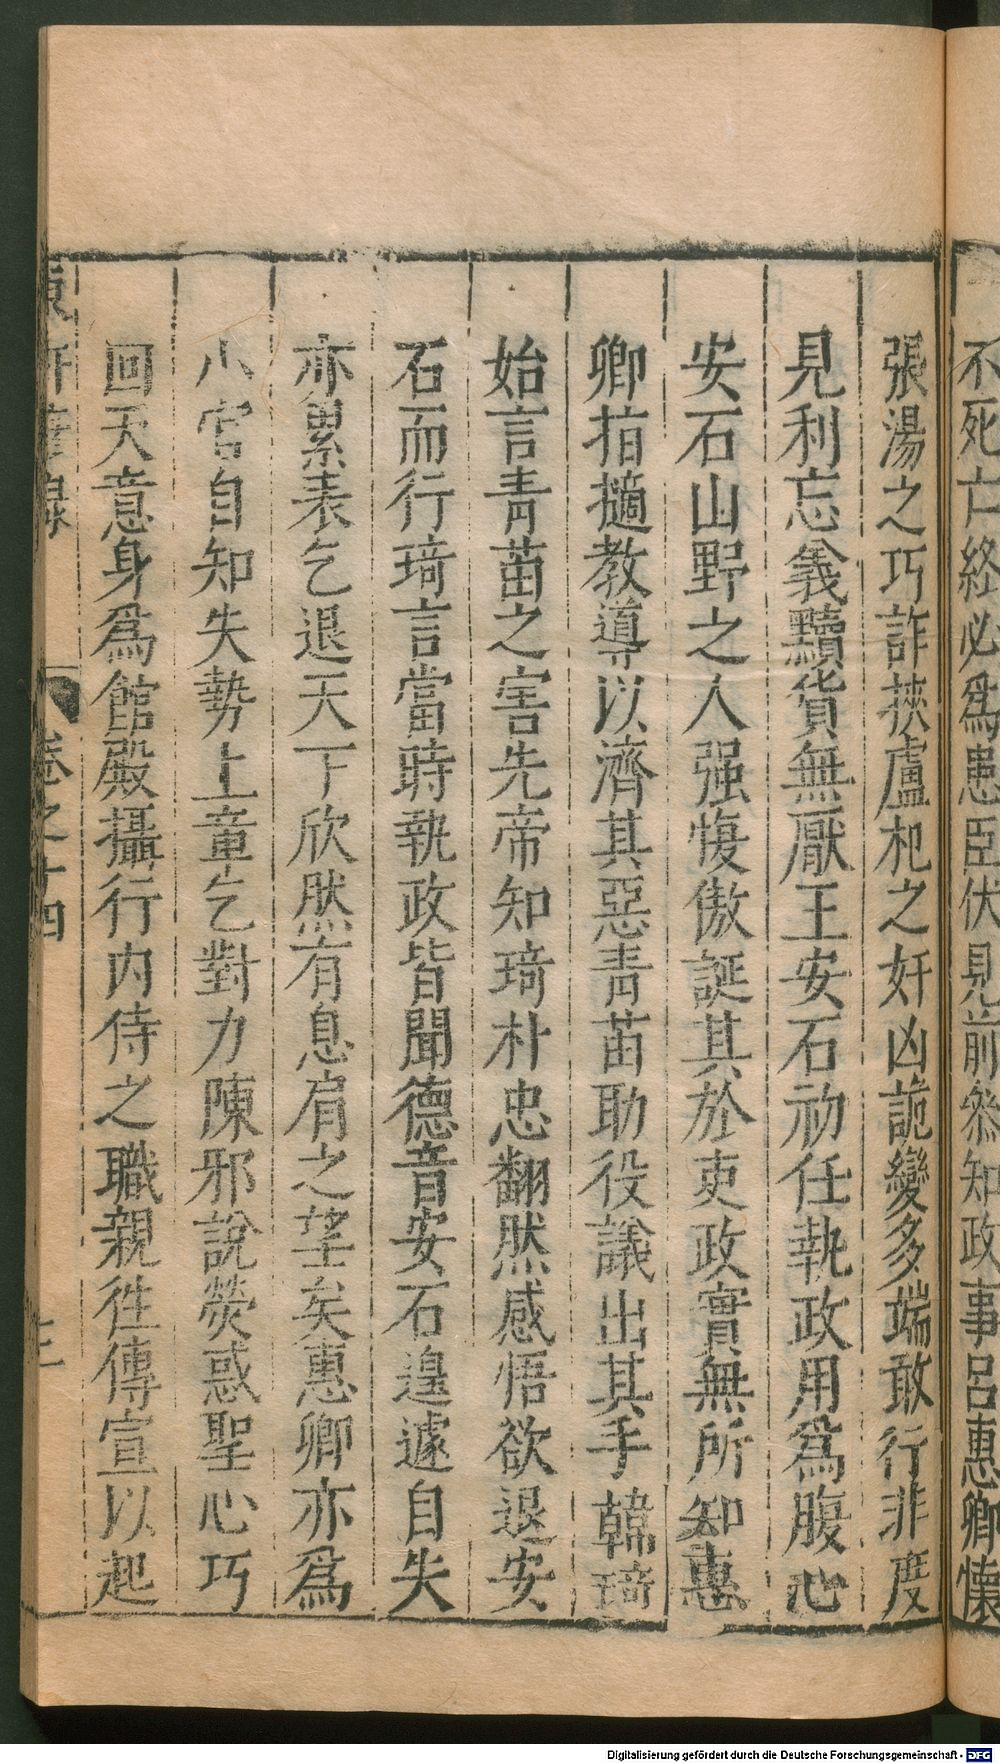 不死亡終必爲患臣伏見前叅知政事呂惠卿懷
張湯之巧詐挾盧杞之奸凶詭變多端敢行非度
見利忘義黷貨無厭王安石初任執政用爲腹心
安石山野之人强愎傲誕其於吏政實無所知惠
卿指擿教導以濟其惡青苗助役議出其手韓琦
始言青苗之害先帝知琦朴忠翻然感悟欲退安
石而行琦言當時執政皆聞德音安石遑遽自失
亦累表乞退天下欣然有息肩之望矣惠卿亦爲
小官自知失勢上章乞對力陳邪說熒惑聖心巧
回天意身爲館殿攝行内侍之職親徃傳宣以起
卷之十四
Digitalisierung gefördert durch die Deutsche Forschungsgemeinschaft - DFG